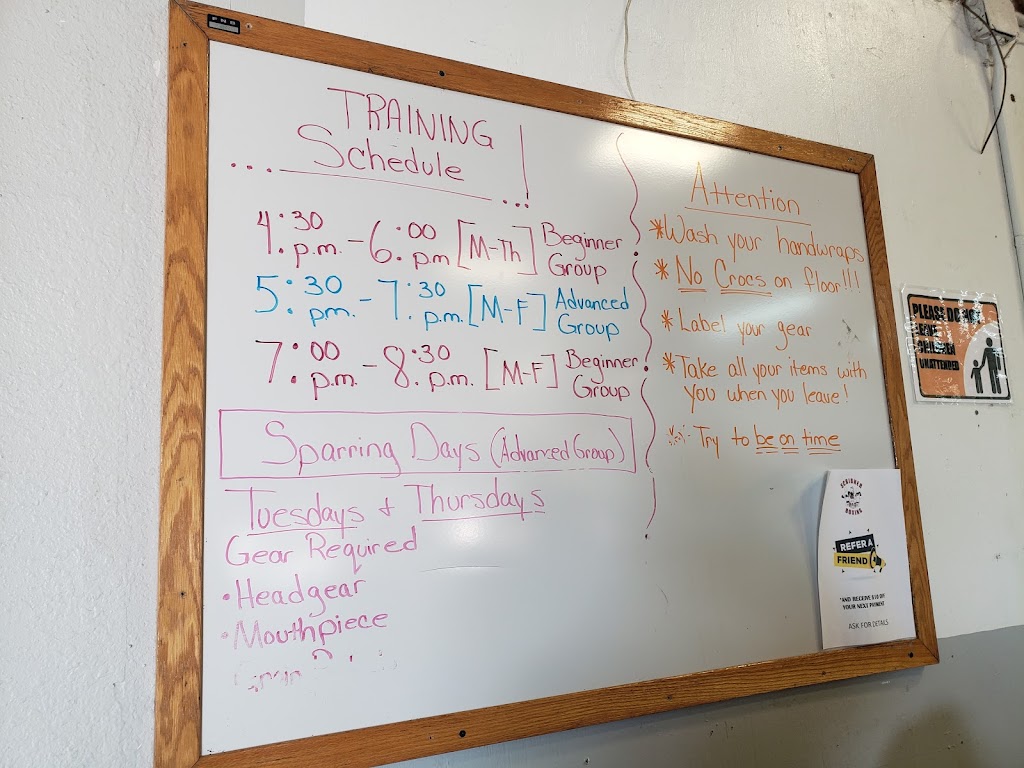 TRAINING
Schedule
4:30 p.m. - 6:00 pm [M-Th] Beginner Group
5:30 pm. - 7:30 p.m. [M-F] Advanced Group
7:00 p.m. - 8:30 p.m. [M-F] Beginner Group
Sparring Days (Advanced Group)
Tuesdays & Thursdays
Gear Required
• Headgear
• Mouthpiece
Attention
*Wash your handwraps
* No Crocs on floor!!!
* Label your gear
*Take all your items with
you when you leave!
* - Try to be on time
PLEASE DO NOT
LEAVE
CHILDREN
UNATTENDED
BOXING
REFER A
FRIEND
*AND RECEIVE $10 OFF
YOUR NEXT PAYMENT
ASK FOR DETAILS